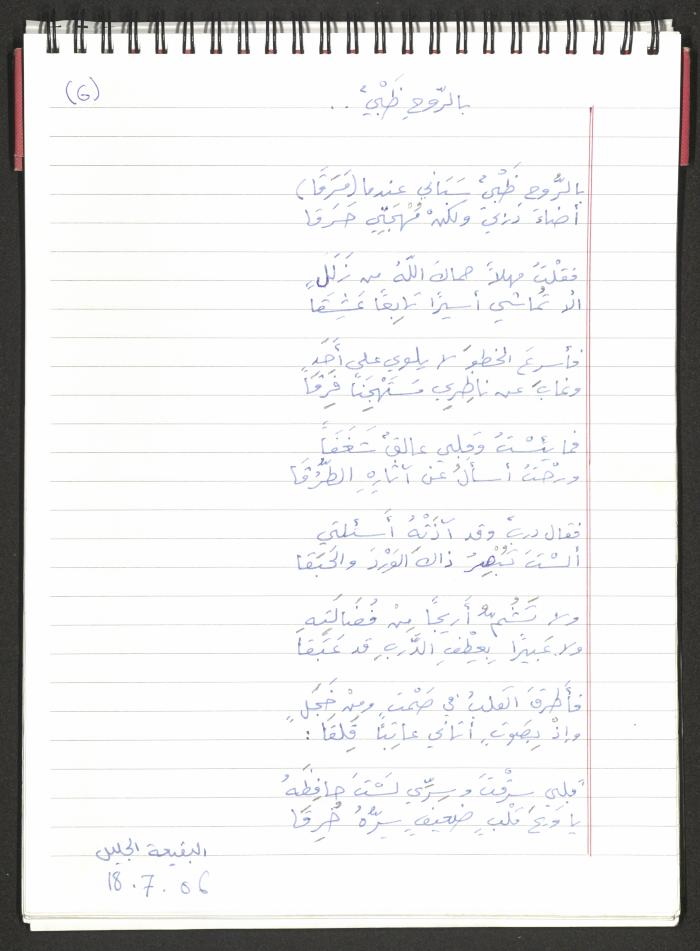 (6)
بالرّوحِ ظَبْيٌ ..
بالرُّوح ظَبْيٌ سَبَاني عندما (مَرَقَا)
أضاءَ دَربيَ ولكنْ مُهْجَتِي حَرَقَا
فقلْتُ مهلاً حماكَ اللّهُ من زَلَلٍ
ألا تُماشي أسيرًا تابِعًا عَشِقَا
فأسرعَ الخطوَ لا يلوي على أَحَدٍ
وغابَ عن ناظِرِي مُسْتَهْجِنًا فَرِقَاً
فما يَئِسْتُ وَقلبي عالقٌ شَغَفَاً
ورُحْتُ أسألُ عَن آثارِهِ الطُّرُقَا
فقال دربٌ وقد آذَتْهُ أَسئلتي
ألسْتَ تُبْصِرُ ذاكَ الوَرْدَ والحَبَقا
ولا تَشُمُّ أَريجًا مِنْ فُضَالَتِهِ
ولا عَبيرًا بِعِطْفِ الدَّربِ قد عَبَقَا
فأَطرَقَ القلبُ في صَمْتٍ ومِنْ خَجَلٍ
وإذْ بِصَوتٍ أتاني عاتِبًا قَلِقَا :
"قلبي سرقْتَ وسِرِّي لَسْتَ حافِظَهُ
يا وَيْحَ قَلْبٍ ضعيفٍ سِرُّهُ سُرِقَا
البقيعة الجليل
18.7.06